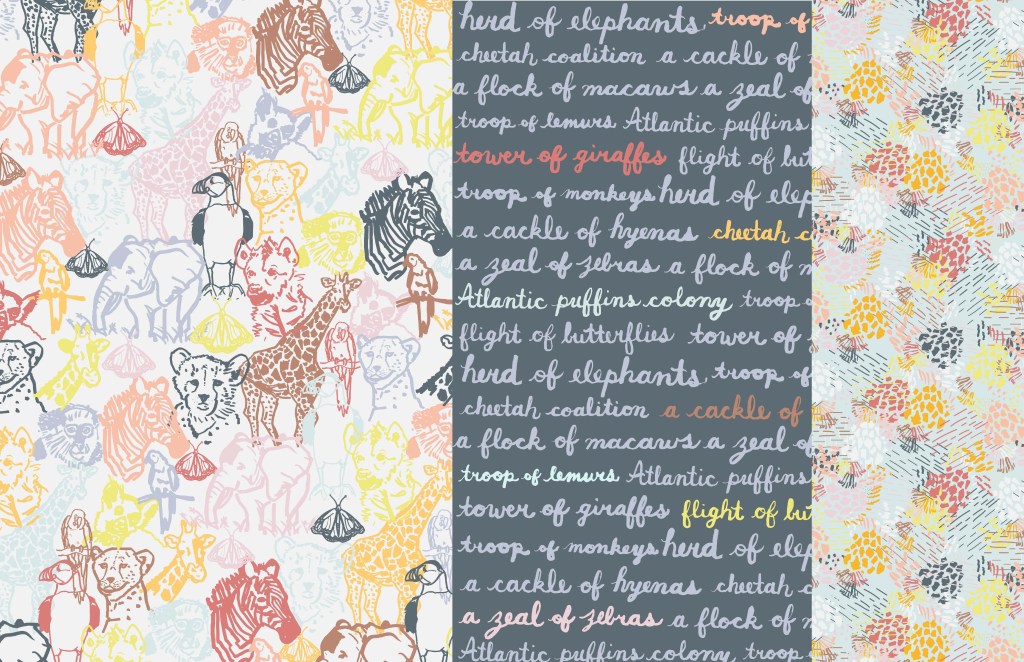 herd of elephants troop of
cheetah coalition a cackle of
a flock of macaws a zeal of
troop of lemurs Atlantic puffins
tower of giraffes flight of
troop of monkeys herd of
a cackle of hyenas cheetah
a zeal of zebras a flock of
Atlantic puffins colony troop
flight of butterflies tower of
herd of elephants troop of
cheetah coalition a cackle of
a flock of macaws a zeal of
troop of lemurs Atlantic puffins
tower of giraffes flight of
troop of monkeys herd of
a cackle of hyenas cheetah
a zeal of zebras a flock of
Atlantic puffins colony troop